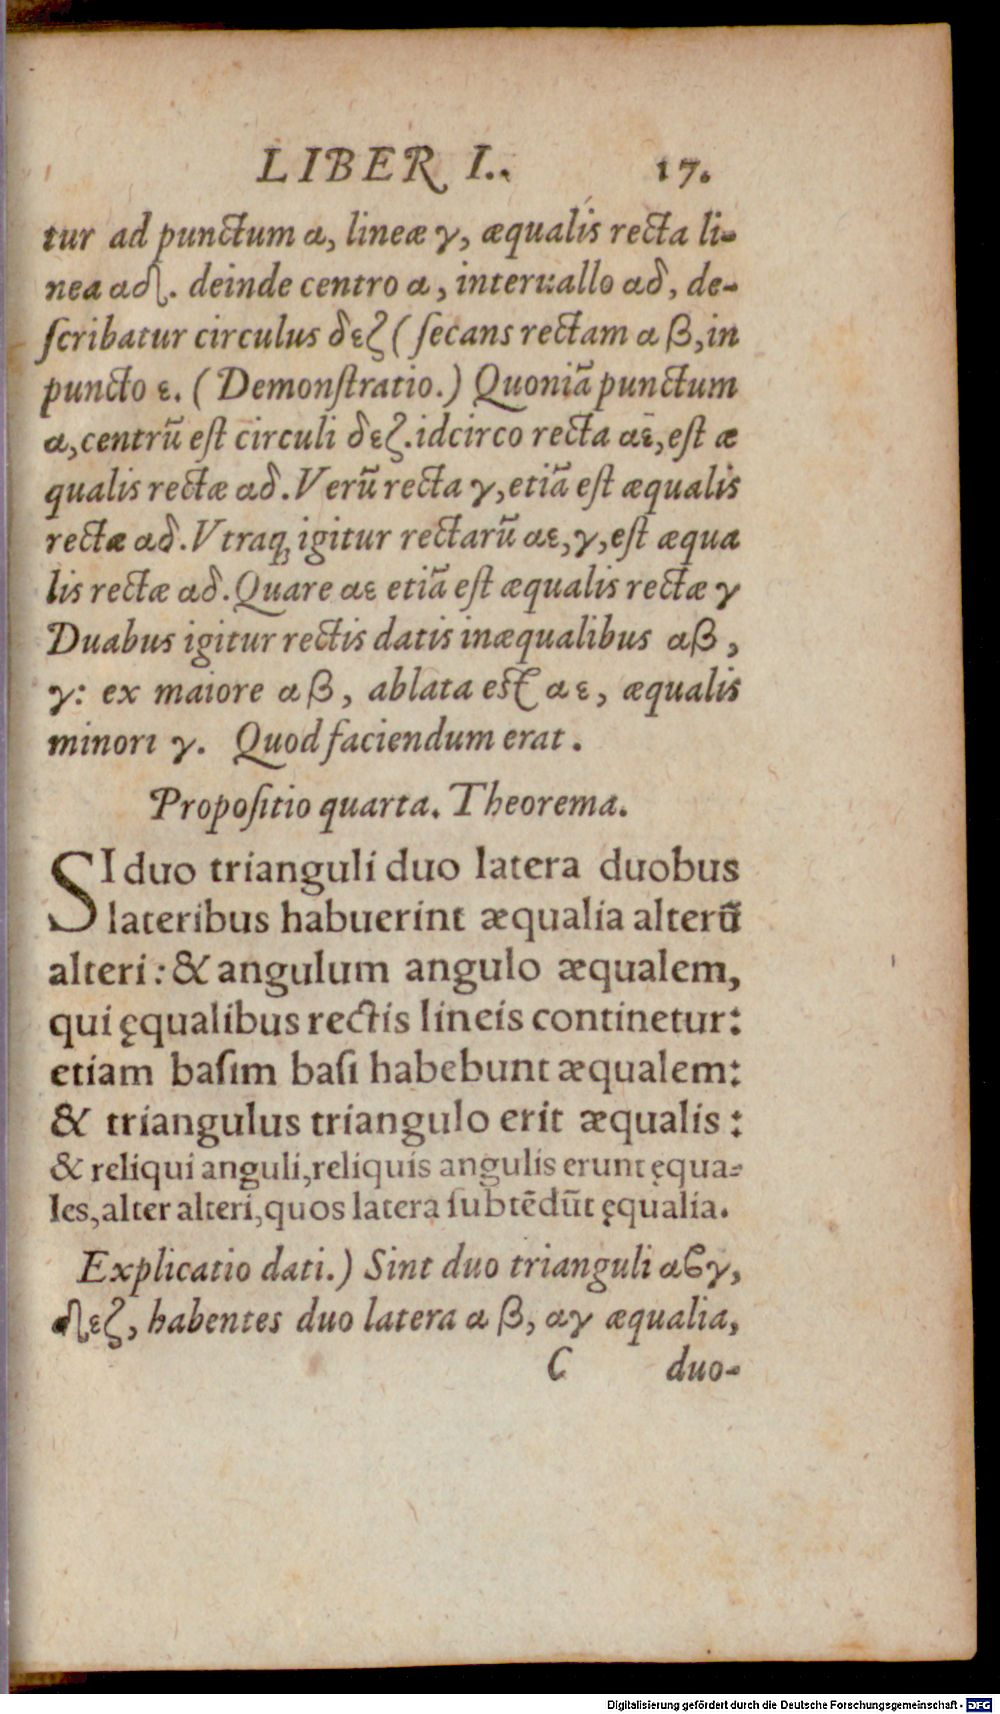 LIBER I. 17.
tur ad punctum α, lineæ γ, æqualis recta li-
nea αδ. deinde centro α, interuallo αδ, de-
ſcribatur circulus δεζ (ſecans rectam αβ, in
puncto ε. (Demonſtratio.) Quoniā punctum
α, centrū eſt circuli δεζ. idcirco recta αε, eſt æ
qualis rectæ αδ. Verū recta γ, etiā eſt æqualis
rectæ αδ. Vtraq; igitur rectarū αε, γ, eſt æqua
lis rectæ αδ. Quare αε etiā eſt æqualis rectæ γ
Duabus igitur rectis datis inæqualibus αβ,
γ: ex maiore αβ, ablata eſt αε, æqualis
minori γ. Quod faciendum erat.
Propoſitio quarta. Theorema.
SI duo trianguli duo latera duobus
lateribus habuerint æqualia alterū
alteri: & angulum angulo æqualem,
qui ęqualibus rectis lineis continetur:
etiam baſim baſi habebunt æqualem:
& triangulus triangulo erit æqualis:
& reliqui anguli, reliquis angulis erunt ęqua-
les, alter alteri, quos latera ſubtēdūt ęqualia.
Explicatio dati.) Sint duo trianguli αϐγ,
δεζ, habentes duo latera αβ, αγ æqualia,
C duo-
Digitalisierung gefördert durch die Deutsche Forschungsgemeinschaft - DFG